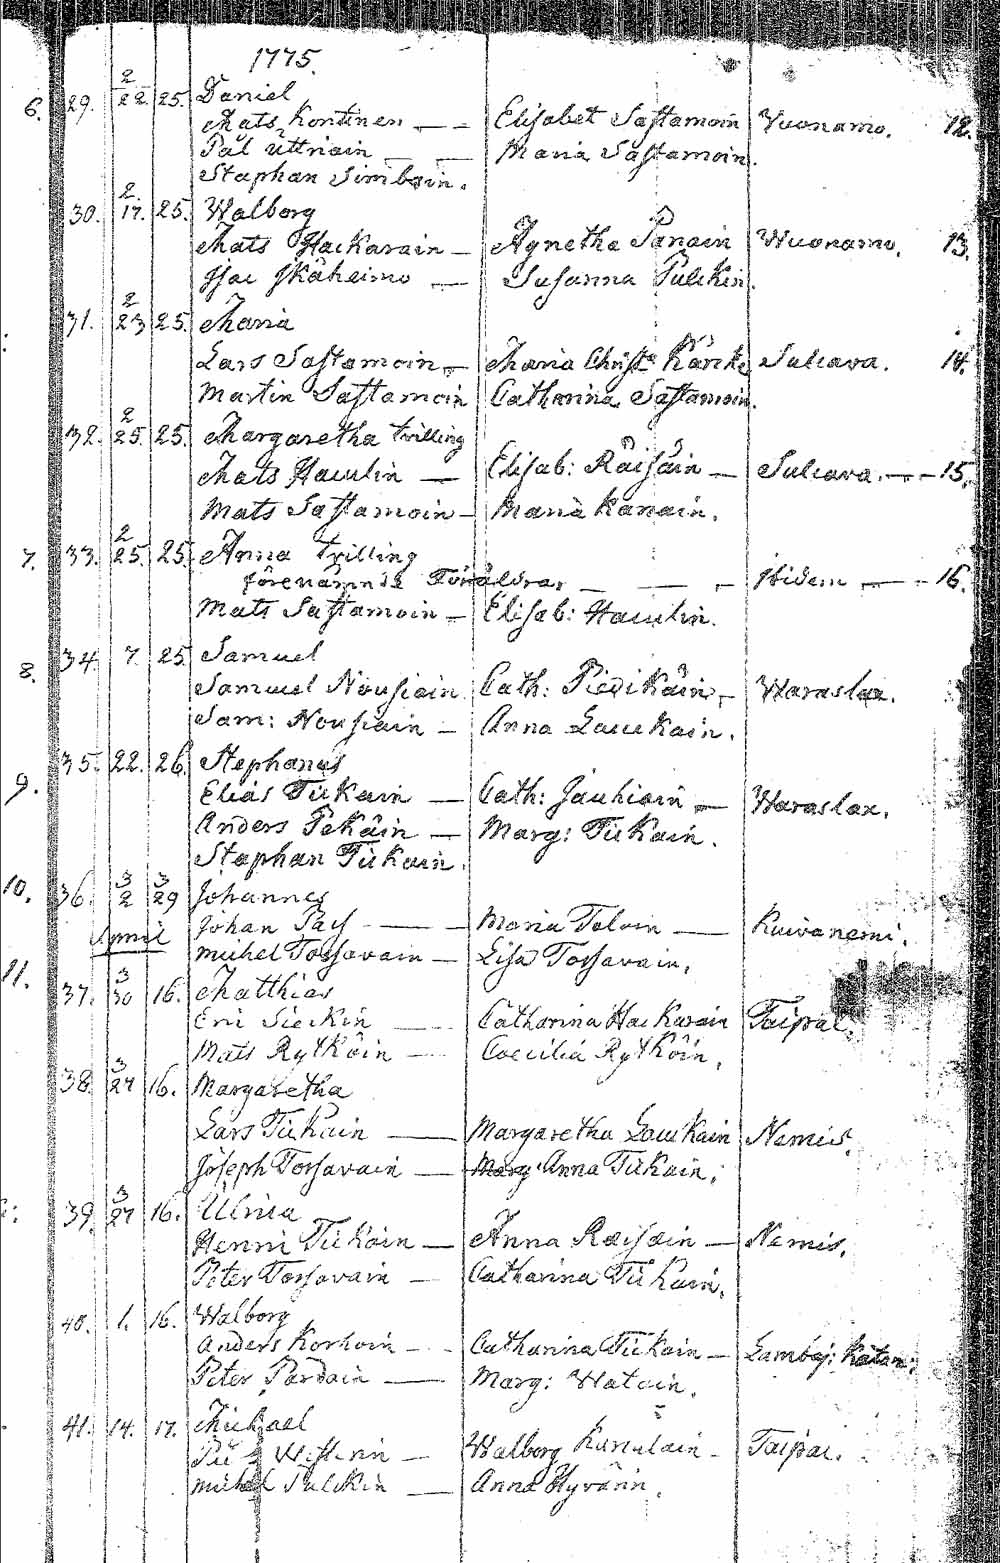 1775.
6. 29. 2/22. 25. Daniel
Mats Kontinen — Elisabet Saſtamoin Vuonamo. 12.
Pål Uttriain — Maria Saſtamoin.
Staphan Simboin.
30. 2/17. 25. Walborg
Mats Hackarain — Agnetha Panain Wuonamo. 13.
Iſac Ikäheimo — Suſanna Pulckin.
31. 2/23 25. Maria
Lars Saſtamoin — Maria Chriſt: Kärcke Sulcava. 14.
Martin Saſtamoin Catharina Saſtamoin.
32. 2/25. 25. Margaretha trilling
Mats Haulin — Eliſab: Räiſäin — Sulcava. — 15.
Mats Saſtamoin — Maria Kanain.
7. 33. 2/25. 25. Anna trilling
förenämnda Föräldrar — Ibidem — 16.
Mats Saſtamoin — Eliſab: Haulin.
8. 34. 7. 25. Samuel
Samuel Nouſiain Cath: Piedikäin — Waraslax.
Sam: Nouſiain — Anna Laukain.
9. 35. 22. 26. Stephanus
Elias Tiikain — Cath: Jauhiain — Waraslax.
Anders Pekäin — Marg: Tiikain.
Staphan Tiikain.
10. 36. 3/2 3/29 Johannes
Johan Paſ — Maria Tolvin — Kuivanemi.
April
Michel Torſavain — Liſa Torſavain.
11. 37. 3/30 16. Matthias
Eric Sieckin — Catharina Hackarain Taipal.
Mats Rytköin — Caecilia Rytköin.
38. 3/27 16. Margaretha
Lars Tiikain — Margaretha Laukain Nemis.
Joſeph Torſavain — Marg: Anna Tiikain.
39. 3/27 16. Ulrica
Henric Tiikain — Anna Räiſäin — Nemis.
Peter Torſavain — Catharina Tiikain.
40. 1. 16. Walborg
Anders Korhoin — Catharina Tiikain — Lambaj:
Peter Pardain — Marg: Watain.
41. 14. 17. Michael
Weſterin — Walborg — Taipal.
Michel Pulckin — Anna Hyvärin.